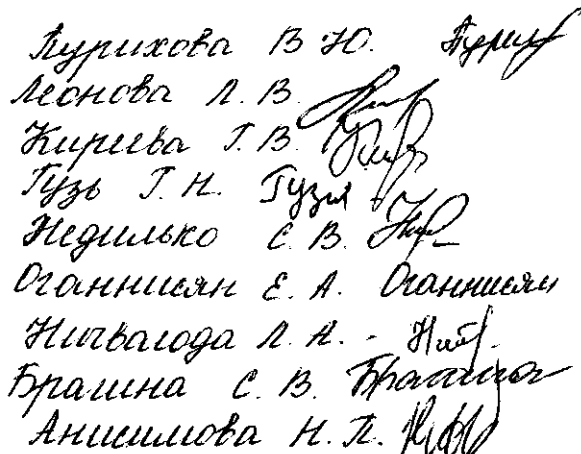 Пурихова В Ю. Пурих
Леонова Л. В.
Киреева Г. В.
Гузь Г. Н. Гузь
Недилько С. В.
Оганнисян Е. А. Оганнисян
Ничваюда Л. А. -
Брагина С. В. Брагина
Анисимова Н. П.